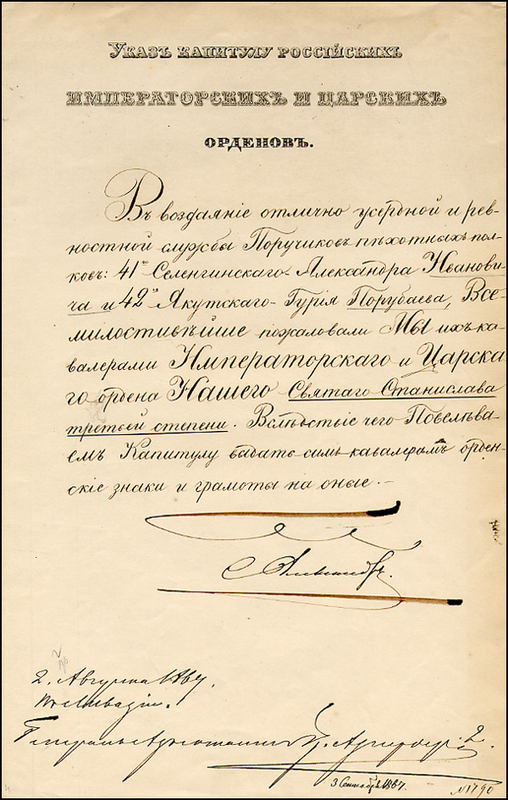 Указъ капитулу россійскихъ
императорскихъ и царскихъ
орденовъ.
Въ воздаяніе отлично усердной и рев-
ностной службы Поручиковъ пѣхотныхъ пол-
ковъ: 41го Селенгинскаго Александра Иванови-
ча и 42го Якутскаго Гурія Порубаева, Все-
милостивѣйше пожаловали Мы ихъ ка-
валерами Императорскаго и Царска-
го ордена Нашего Святаго Станислава
третьей степени. Вслѣдствіе чего Повелѣва-
емъ Капитулу выдать симъ кавалерамъ орден-
скіе знаки и грамоты на оные.
Александръ.
2. Августа 1867.
Генералъ-Адъютантъ 2.
3 Сентябр. 1867.
№ 1790